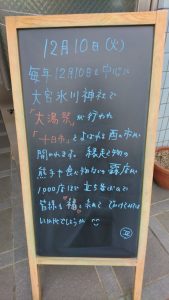 12月10日(火)
毎年12月10日を中心に
大宮氷川神社で
「大湯祭」が行われ
「十日市」とよばれる酉の市が
開かれます。縁起物の
熊手や食べ物など露店が
1000店ほど立ち並ぶので
皆様も福を求めて でかけてみては
いかがでしょうか